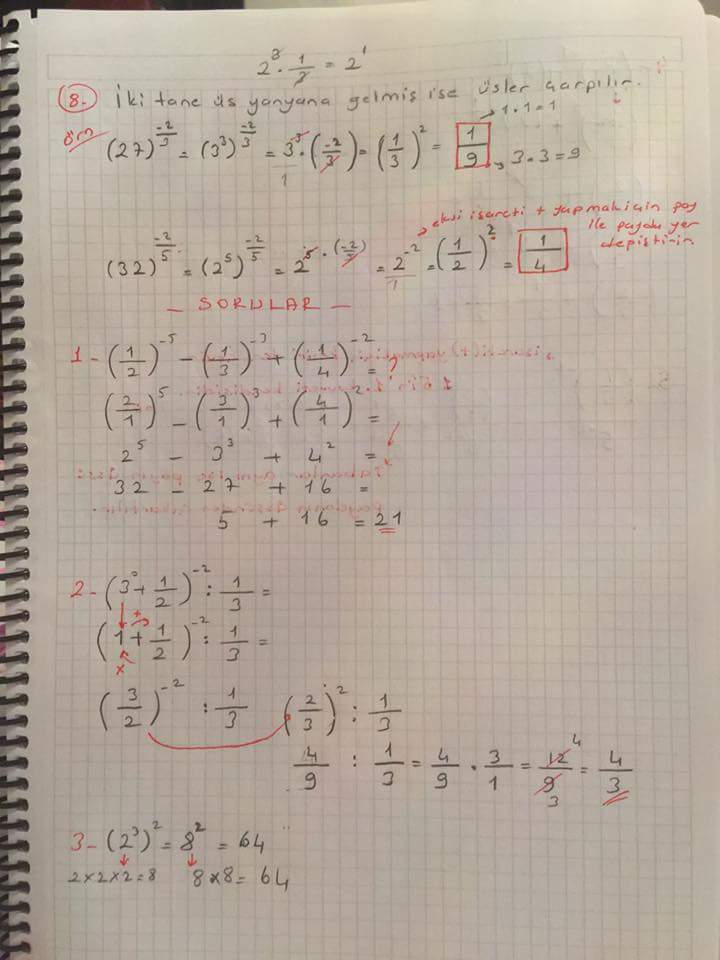 2³ · 1/3 = 2¹
8- İki tane üs yanyana gelmiş ise üsler çarpılır.
örn (27)^(-2/3) = (3³)^(-2/3) = 3³ · (-2/3) = (1/3)² = 1/9 → 1·1=1 → 3·3=9
1
→ eksi işareti + yapmak için pay
ile payda yer
değiştirir
(32)^(-2/5) = (2⁵)^(-2/5) = 2⁵ · (-2/5) = 2⁻²/1 = (1/2)² = 1/4
- SORULAR -
1- (1/2)⁻⁵ - (1/3)⁻³ + (1/4)⁻² = ?
(2/1)⁵ - (3/1)³ + (4/1)² =
2⁵ - 3³ + 4² =
32 - 27 + 16 =
5 + 16 = 21
2- (3⁰ + 1/2)⁻² : 1/3 =
(1 + 1/2)⁻² : 1/3 =
+
x
(3/2)⁻² : 1/3 (2/3)² : 1/3
4/9 : 1/3 = 4/9 · 3/1 = 12/9 = 4/3
4
3
3- (2³)² = 8² = 64
2×2×2=8 8×8=64